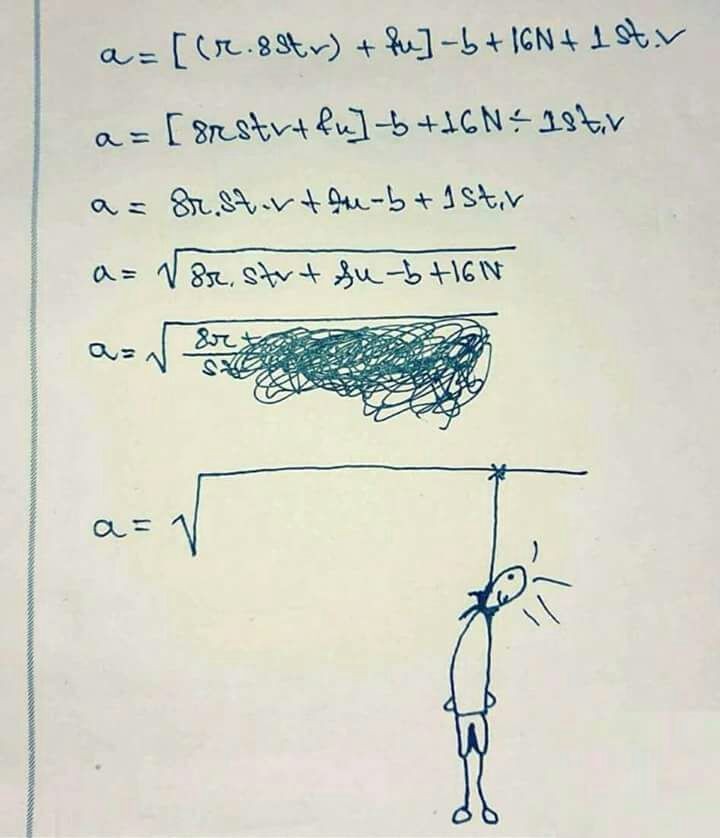 a = [(r.8stv) + fu] - b + 16N + 1 st.v
a = [8rstv + fu] - b + 16N ÷ 1st.v
a = 8r.st.v + fu - b + 1st.v
a = √8r.stv + fu - b + 16N
a = √8r +
a = √